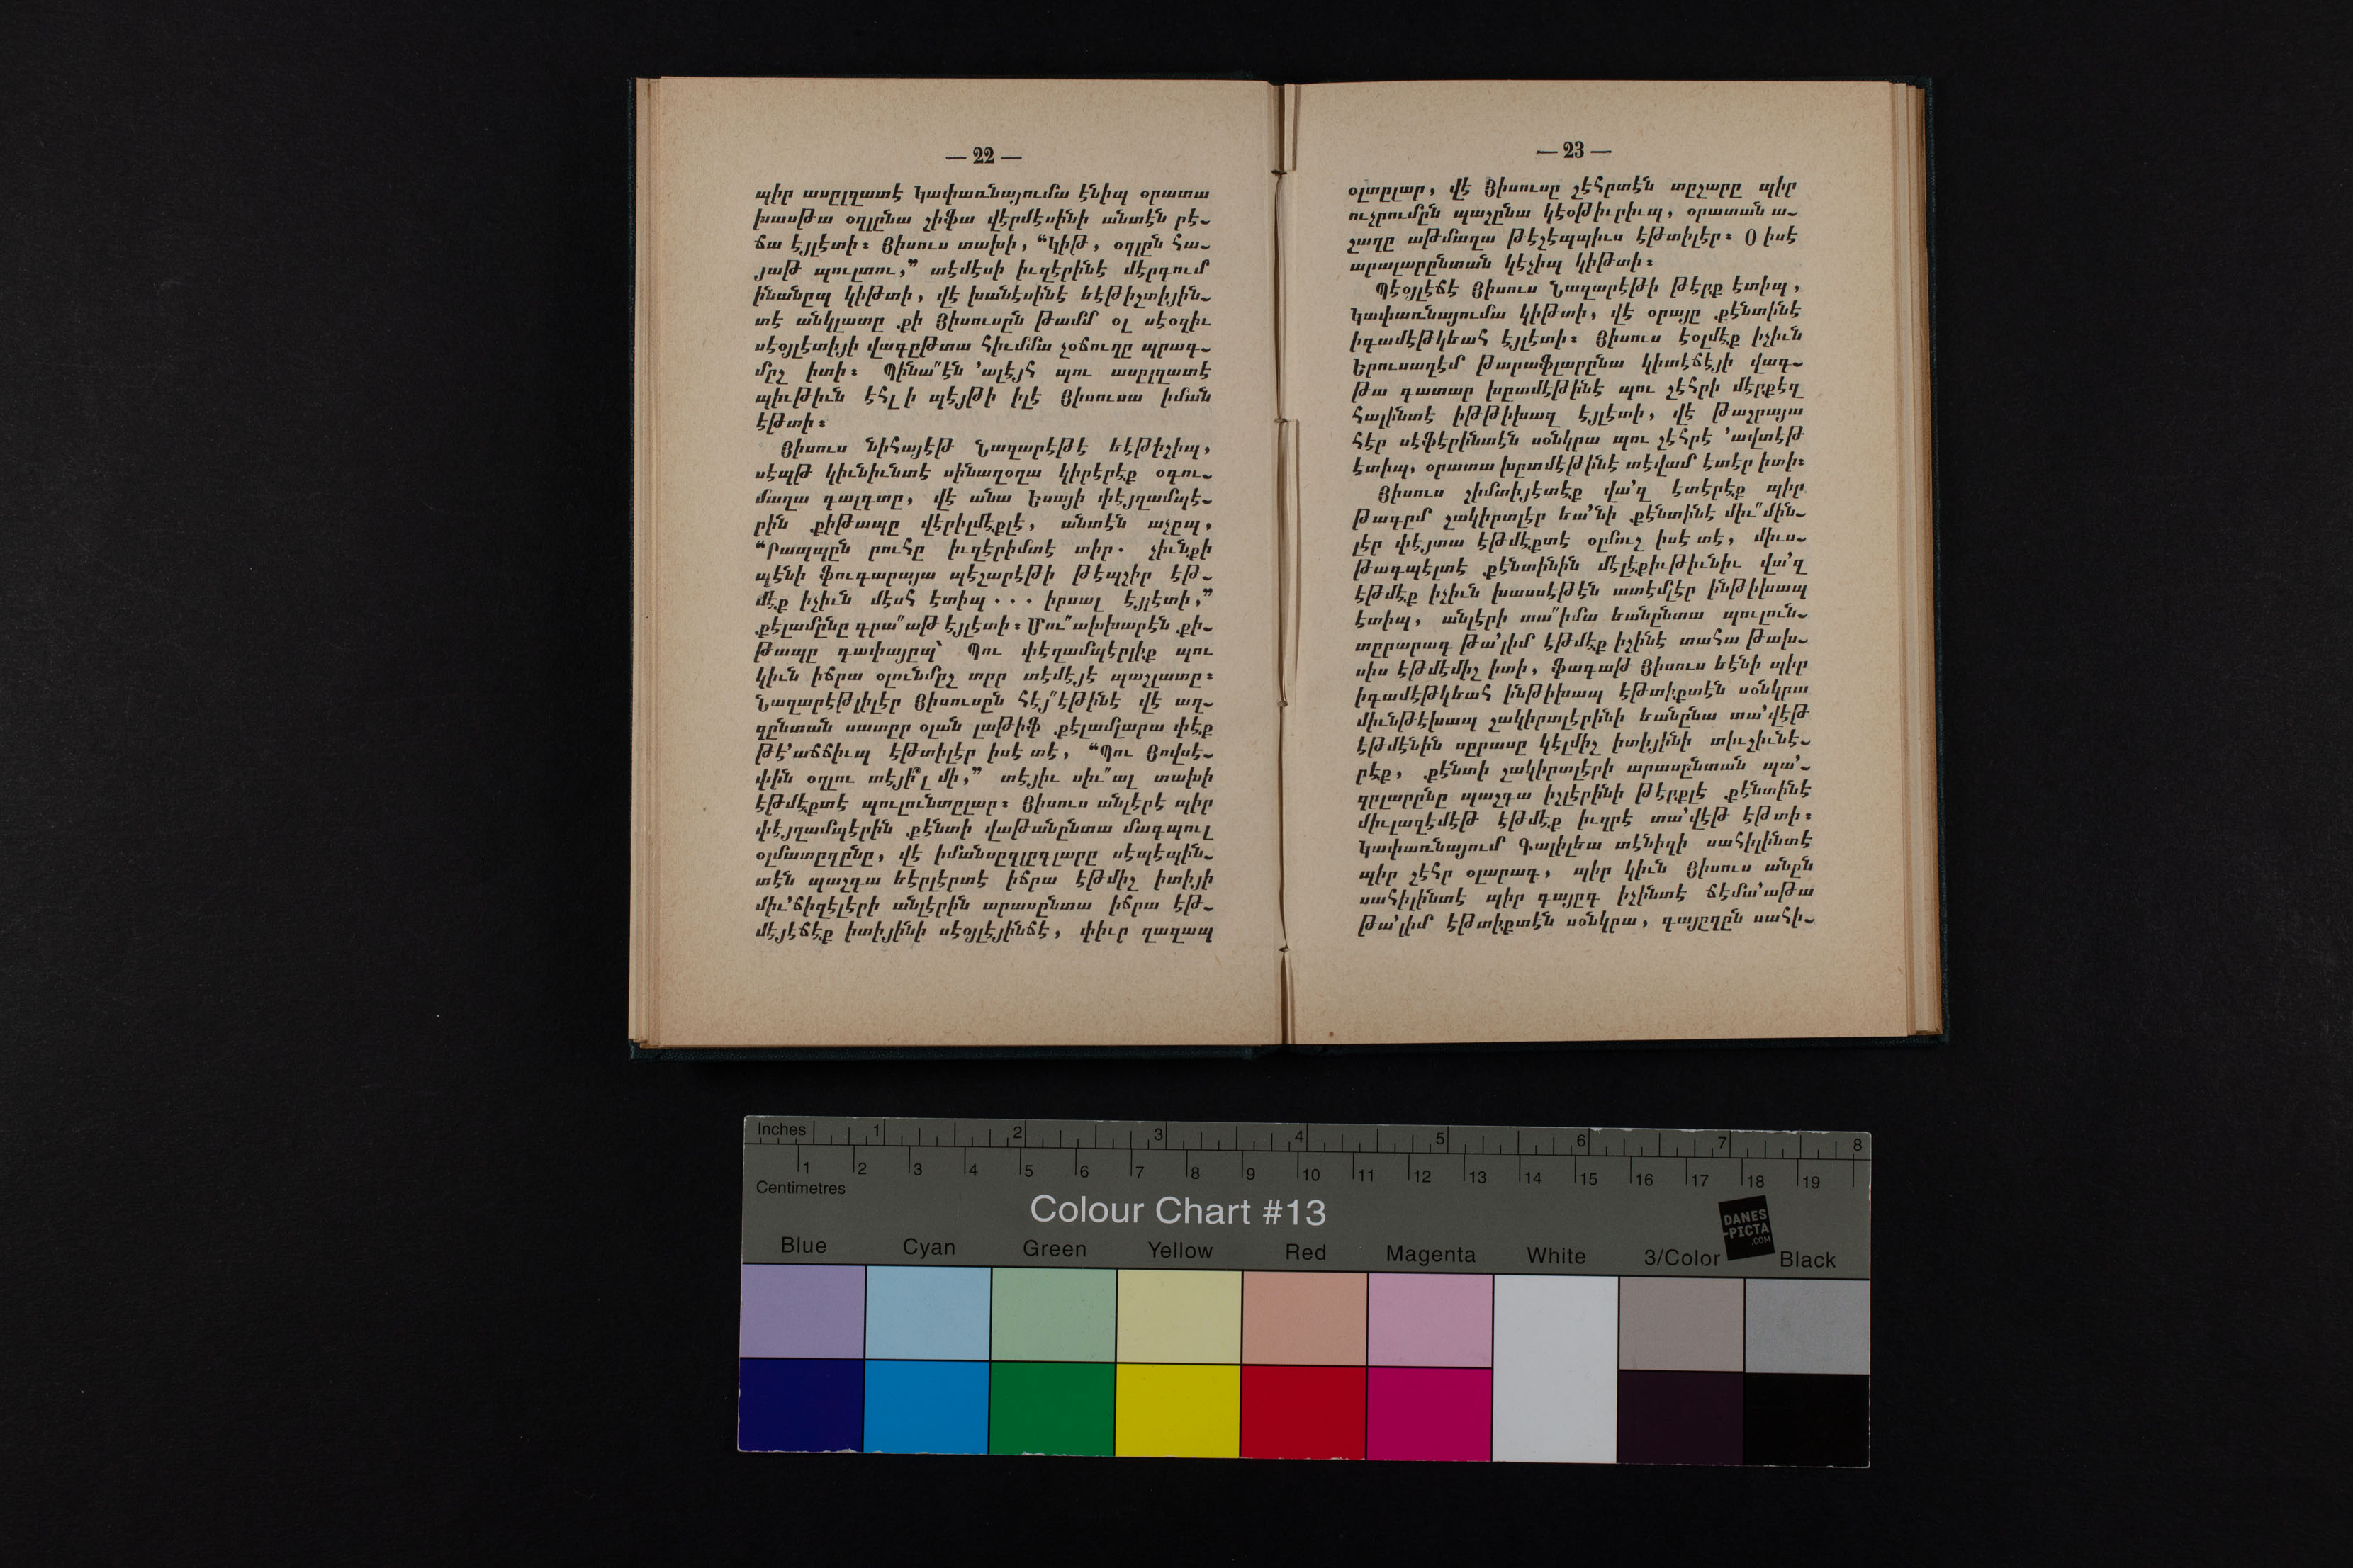 — 22 —
պիր ասըլղատէ Կափառնայումա էնիպ օրատա
խասթա օղլընա շիֆա վէրմէսինի անտէն րէ֊
ճա էյլէտի։ Յիսուս տախի, “Կիթ, օղլըն հա֊
յաթ պուլտու,” տէմէսի իւզէրինէ մէրդում
ինանըպ կիթտի, վէ խանէսինէ եէթիշտիյին֊
տէ անկլատը քի Յիսուսըն թամմ օլ սէօզիւ
սէօյլէտիյի վագըթտա հիւմմա չօճուղը պրագ֊
մըշ իտի։ Պինա՞էն ՚ալէյհ պու ասըլղատէ
պիւթիւն էհլ ի պէյթի իլէ Յիսուսա իման
էթտի։
Յիսուս նիհայէթ Նաղարէթէ եէթիշիպ,
սէպթ կիւնիւնտէ սինաղօղա կիրէրէք օգու֊
մաղա գալգտը, վէ անա Եսայի փէյղամպէ֊
րին քիթապը վէրիլմէքլէ, անտէն աչըպ,
“Րապպըն րուհը իւզէրիմտէ տիր. չիւնքի
պէնի ֆուգարայա պէշարէթի թէպշիր էթ֊
մէք իչիւն մէսհ էտիպ . . . իրսալ էյլէտի,”
քէլամընը գրա՞աթ էյլէտի։ Մու՞ախխարէն քի֊
թապը գափայըպ՝ Պու փէղամպէրլիք պու
կիւն իճրա օլունմըշ տըր տէմէյէ պաշլատը։
Նաղարէթլիլէր Յիսուսըն հէյ՞էթինէ վէ աղ֊
զընտան սատըր օլան լաթիֆ քէլամլարա փէք
թէ՚աճճիւպ էթտիլէր իսէ տէ, “Պու Յովսէ֊
փին օղլու տէյի՞լ մի,” տէյիւ սիւ՞ալ տախի
էթմէքտէ պուլունտըլար։ Յիսուս անլէրէ պիր
փէյղամպէրին քէնտի վաթանընտա մագպուլ
օլմատըղընը, վէ իմանսըզլըգլարը սէպէպին֊
տէն պաշգա եէրլէրտէ իճրա էթմիշ իտիյի
միւ՚ճիզէլէրի անլէրին արասընտա իճրա էթ֊
մէյէճէք իտիյինի սէօյլէյինճէ, փիւր ղաղապ
— 23 —
օլտըլար, վէ Յիսուսը շէհրտէն տըշարը պիր
ուչրումըն պաշընա կէօթիւրիւպ, օրատան ա֊
շաղը աթմաղա թէշէպպիւս էթտիլէր։ Օ իսէ
արալարընտան կէչիպ կիթտի։
Պէօյլէճէ Յիսուս Նաղարէթի թէրք էտիպ,
Կափառնայումա կիթտի, վէ օրայը քէնտինէ
իգամէթկեահ էյլէտի։ Յիսուս էօլմէք իչիւն
Երուսաղէմ թարաֆլարընա կիտէճէյի վագ֊
թա գատար խըտմէթինէ պու շէհրի մէրքէզ
հալինտէ իթթիխազ էյլէտի, վէ թաշրայա
հէր սէֆէրինտէն սօնկրա պու շէհրէ ՚ավտէթ
էտիպ, օրատա խըտմէթինէ տէվամ էտէր իտի։
Յիսուս շիմտիյէտէք վա՚զ էտէրէք պիր
թագըմ շակիրտլէր եա՚նի քէնտինէ միւ՞մին֊
լէր փէյտա էթմէքտէ օլմուշ իսէ տէ, միւս֊
թագպէլտէ քէնտինին մէլէքիւթիւնիւ վա՚զ
էթմէք իչիւն խասսէթէն ատէմլէր ինթիխապ
էտիպ, անլէրի տա՞իմա եանընտա պուլուն֊
տըրարագ թա՚լիմ էթմէք իչինէ տահա թախ֊
սիս էթմէմիշ իտի, ֆագաթ Յիսուս եէնի պիր
իգամէթկեահ ինթիխապ էթտիքտէն սօնկրա
միւնթէխապ շակիրտլէրինի եանընա տա՚վէթ
էթմէնին սըրասը կէլմիշ իտիյինի տիւշիւնէ֊
րէք, քէնտի շակիրտլէրի արասընտան պա՚֊
զըլարընը պաշգա իշլէրինի թէրքլէ քէնտինէ
միւլազէմէթ էթմէք իւզրէ տա՚վէթ էթտի։
Կափառնայում Գալիլեա տէնիզի սահիլինտէ
պիր շէհր օլարագ, պիր կիւն Յիսուս անըն
սահիլինտէ պիր գայըգ իչինտէ ճէմա՚աթա
թա՚լիմ էթտիքտէն սօնկրա, գայըղըն սահի֊
Inches 1 2 3 4 5 6 7 8
1 2 3 4 5 6 7 8 9 10 11 12 13 14 15 16 17 18 19
Centimetres
Colour Chart #13
DANES
-PICTA
.COM
Blue Cyan Green Yellow Red Magenta White 3/Color Black